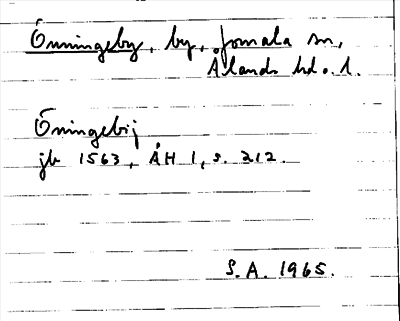 Önningeby, by, Jomala sn,
Ålands hd o. l.
Öningebij
jb 1563, ÅH 1, s. 212.
S.A. 1965.